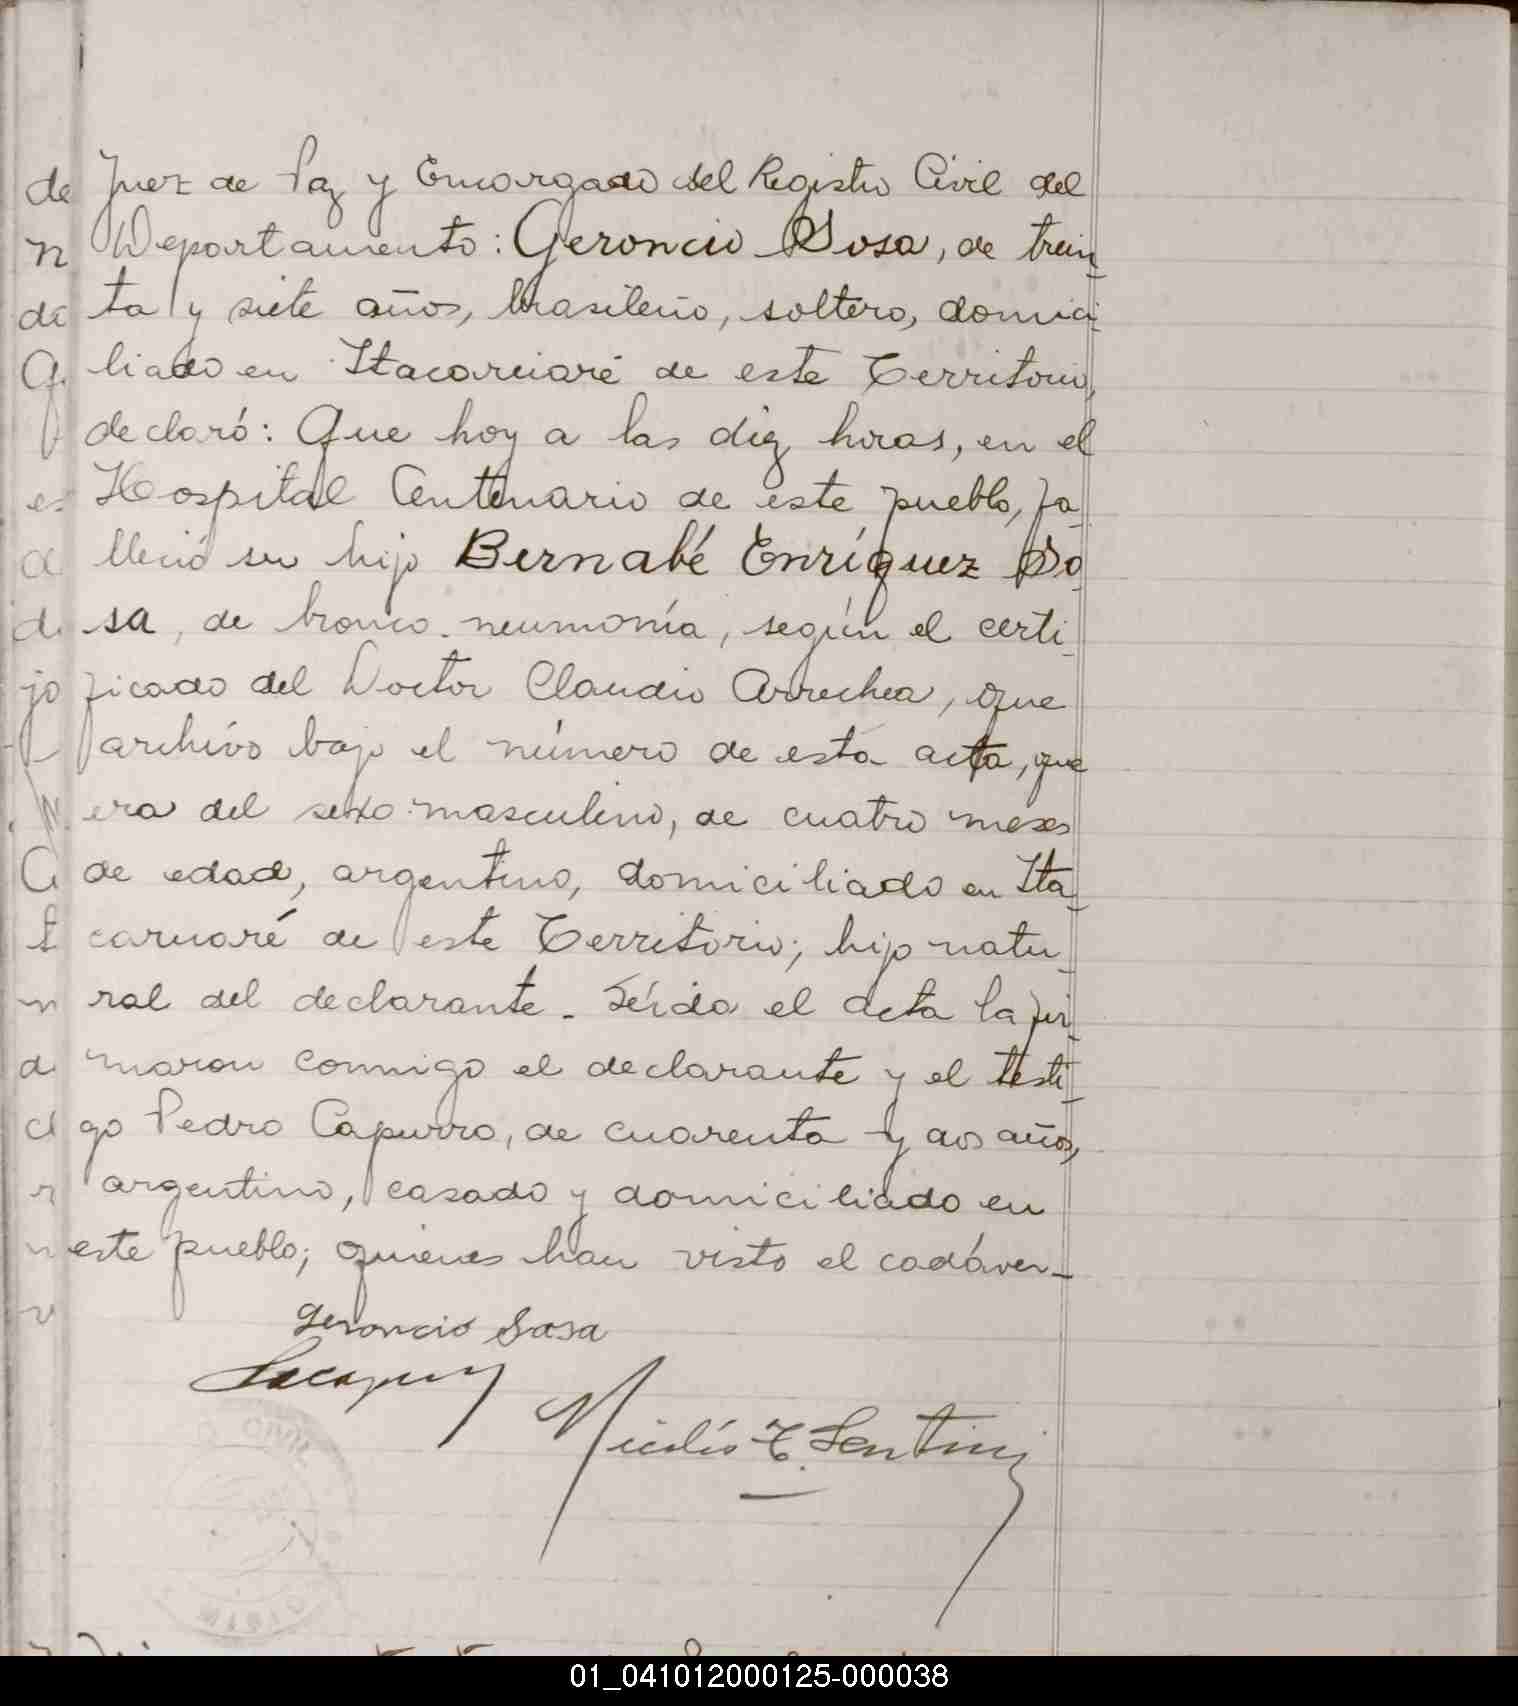 Juez de Paz y Encargado del Registro Civil del
Departamento: Geroncio Sosa, de trein-
ta y siete años, brasileño, soltero, domici-
liado en Itacaruaré de este Territorio,
declaró: Que hoy a las diez horas, en el
Hospital Centenario de este pueblo, fa-
lleció su hijo Bernabé Enríquez So-
sa, de bronco-neumonía, según el certi-
ficado del Doctor Claudio Arrechea, que
archivo bajo el número de esta acta, que
era del sexo masculino, de cuatro meses
de edad, argentino, domiciliado en Ita-
caruaré de este Territorio; hijo natu-
ral del declarante. Leída el acta la fir-
maron conmigo el declarante y el testi-
go Pedro Capurro, de cuarenta y dos años,
argentino, casado y domiciliado en
este pueblo; quienes han visto el cadáver-
Geroncio Sosa
Nicolás T. Sentini
01_041012000125-000038